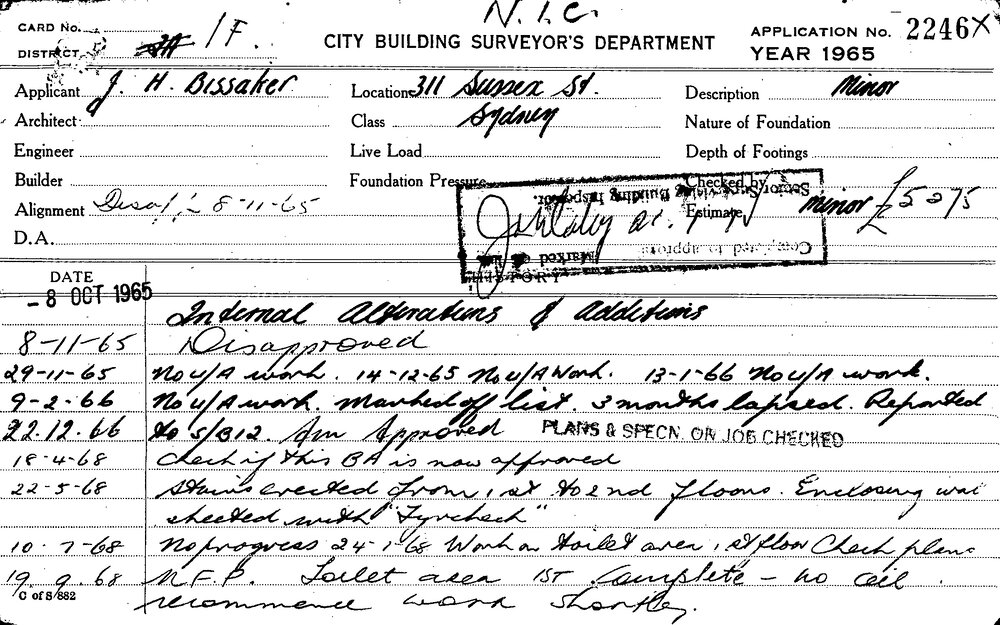 N.I.C.
CARD No. 1F.
DISTRICT
CITY BUILDING SURVEYOR'S DEPARTMENT
APPLICATION No. 2246X
YEAR 1965
Applicant J. H. Bissaker Location 311 Sussex St. Description Minor
Architect Class Sydney Nature of Foundation
Engineer Live Load Depth of Footings
Builder Foundation Pressure Checked by
Alignment 8-11-65 Estimate Minor £5275
D.A.
HISTORY
DATE
-8 OCT 1965 Internal Alterations & Additions
8-11-65 Disapproved
29-11-65 No U/A work. 14-12-65 No U/A Work. 13-1-66 No U/A work.
9-2-66 No U/A work. Marked off list. 3 months lapsed. Reported
22.12.66 to S/B12. Approved PLANS & SPECN. ON JOB CHECKED
18-4-68 Check if this BA is now approved
22-5-68 Stairs erected from 1st to 2nd floors. Enclosing wall
sheeted with "Fyrchek"
10-7-68 No progress 24-7-68 Work on toilet area, 1st floor Check plans
19.9.68 N.F.P. Toilet area 1st Complete - no ceil.
recommence work shortly.
C of S/882